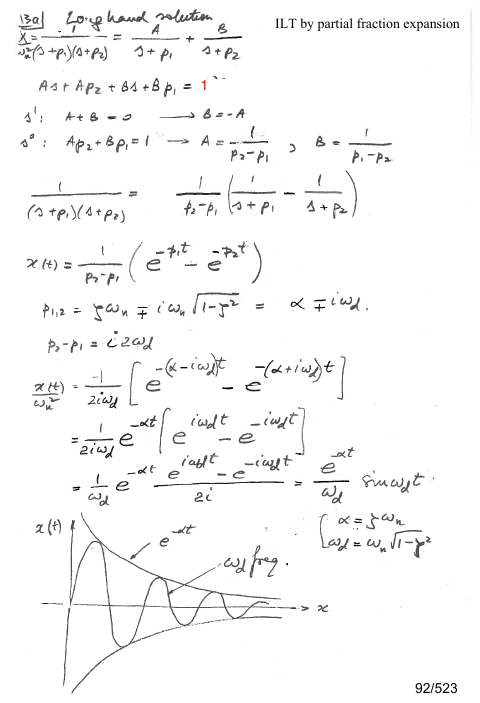 13a) Longhand solution
ILT by partial fraction expansion
X/ωn² = 1/((s+p₁)(s+p₂)) = A/(s+p₁) + B/(s+p₂)
As + Ap₂ + Bs + Bp₁ = 1
s¹: A + B = 0 → B = -A
s⁰: Ap₂ + Bp₁ = 1 → A = 1/(p₂-p₁) , B = 1/(p₁-p₂)
1/((s+p₁)(s+p₂)) = 1/(p₂-p₁) (1/(s+p₁) - 1/(s+p₂))
x(t) = 1/(p₂-p₁) (e^{-p₁t} - e^{-p₂t})
p₁,₂ = ζωn ∓ iωn √(1-ζ²) = α ∓ iωd.
p₂-p₁ = i2ωd
x(t)/ωn² = 1/(2iωd) [e^{-(α-iωd)t} - e^{-(α+iωd)t}]
= 1/(2iωd) e^{-αt} [e^{iωdt} - e^{-iωdt}]
= 1/ωd e^{-αt} (e^{iωdt} - e^{-iωdt})/2i = e^{-αt}/ωd sin ωdt
{ α = ζωn
ωd = ωn √(1-ζ²)
x(t)
e^{-αt}
ωd freq.
x
92/523